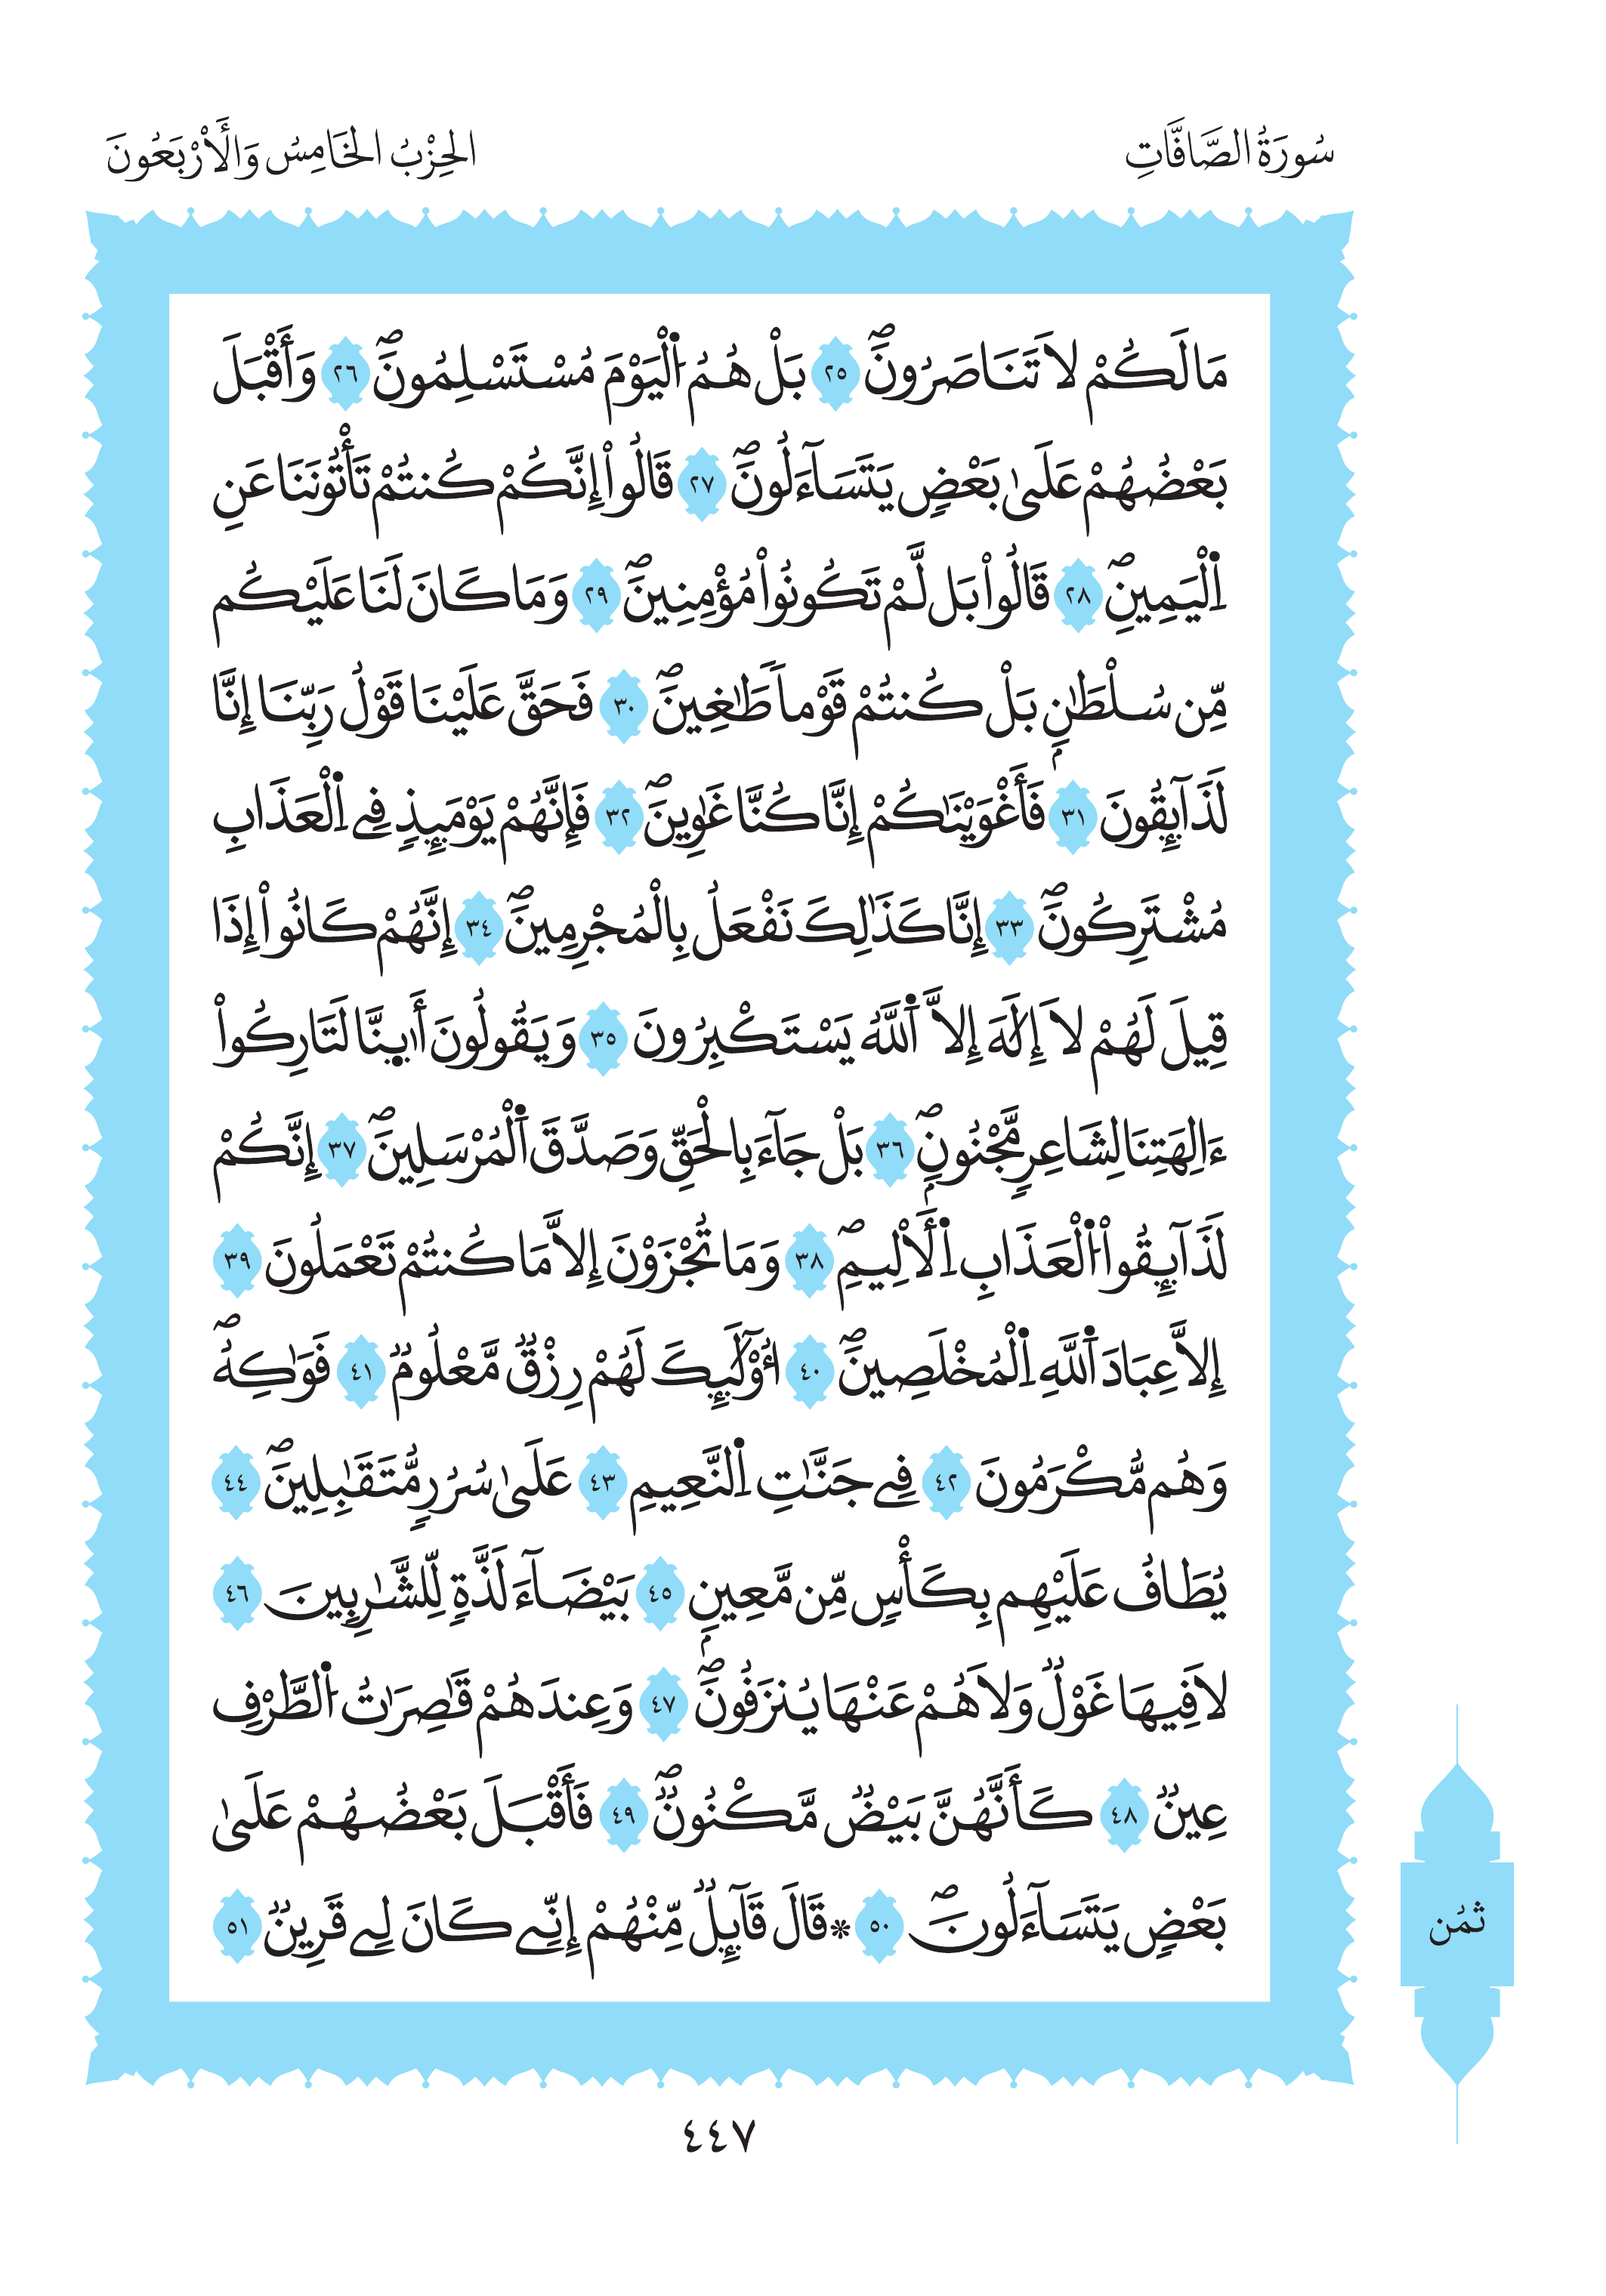 سُورَةُ الصَّافَّاتِ
الحِزْبُ الخَامِسُ وَالأَرْبَعُونَ
مَا لَكُمْ لاَ تَنَاصَرُونَۖ ٢٥ بَلْ هُمُ اُ۬لْيَوْمَ مُسْتَسْلِمُونَۖ ٢٦ وَأَقْبَلَ
بَعْضُهُمْ عَلَىٰ بَعْضٖ يَتَسَآءَلُونَۖ ٢٧ قَالُواْ إِنَّكُمْ كُنتُمْ تَأْتُونَنَا عَنِ
اِ۬لْيَمِينِۖ ٢٨ قَالُواْ بَل لَّمْ تَكُونُواْ مُؤْمِنِينَۖ ٢٩ وَمَا كَانَ لَنَا عَلَيْكُم
مِّن سُلْطَٰنِۢ بَلْ كُنتُمْ قَوْماٗ طَٰغِينَۖ ٣٠ فَحَقَّ عَلَيْنَا قَوْلُ رَبِّنَا إِنَّا
لَذَآئِقُونَ ٣١ فَأَغْوَيْنَٰكُمْ إِنَّا كُنَّا غَٰوِينَۖ ٣٢ فَإِنَّهُمْ يَوْمَئِذٖ فِے اِ۬لْعَذَابِ
مُشْتَرِكُونَۖ ٣٣ إِنَّا كَذَٰلِكَ نَفْعَلُ بِالْمُجْرِمِينَۖ ٣٤ إِنَّهُمْ كَانُواْ إِذَا
قِيلَ لَهُمْ لاَ إِلَٰهَ إِلاَّ اَ۬للَّهُ يَسْتَكْبِرُونَ ٣٥ وَيَقُولُونَ أَا۪ينَّا لَتَارِكُواْ
ءَالِهَتِنَا لِشَاعِرٖ مَّجْنُونِۢۖ ٣٦ بَلْ جَآءَ بِالْحَقِّ وَصَدَّقَ اَ۬لْمُرْسَلِينَۖ ٣٧ إِنَّكُمْ
لَذَآئِقُواْ اُ۬لْعَذَابِ اِ۬لْأَلِيمِۖ ٣٨ وَمَا تُجْزَوْنَ إِلاَّ مَا كُنتُمْ تَعْمَلُونَ ٣٩
إِلاَّ عِبَادَ اَ۬للَّهِ اِ۬لْمُخْلَصِينَۖ ٤٠ أُوْلَٰٓئِكَ لَهُمْ رِزْقٞ مَّعْلُومٞ ٤١ فَوَٰكِهُۖ
وَهُم مُّكْرَمُونَ ٤٢ فِے جَنَّٰتِ اِ۬لنَّعِيمِ ٤٣ عَلَىٰ سُرُرٖ مُّتَقَٰبِلِينَۖ ٤٤
يُطَافُ عَلَيْهِم بِكَأْسٖ مِّن مَّعِينِۢ ٤٥ بَيْضَآءَ لَذَّةٖ لِّلشَّٰرِبِينَ ٤٦
لاَ فِيهَا غَوْلٞ وَلاَ هُمْ عَنْهَا يُنزَفُونَۖ ٤٧ وَعِندَهُمْ قَٰصِرَٰتُ اُ۬لطَّرْفِ
عِينٞ ٤٨ كَأَنَّهُنَّ بَيْضٞ مَّكْنُونٞۖ ٤٩ فَأَقْبَلَ بَعْضُهُمْ عَلَىٰ
بَعْضٖ يَتَسَآءَلُونَۖ ٥٠ * قَالَ قَآئِلٞ مِّنْهُمْ إِنِّے كَانَ لِے قَرِينٞ ٥١
ثُمُن
٤٤٧